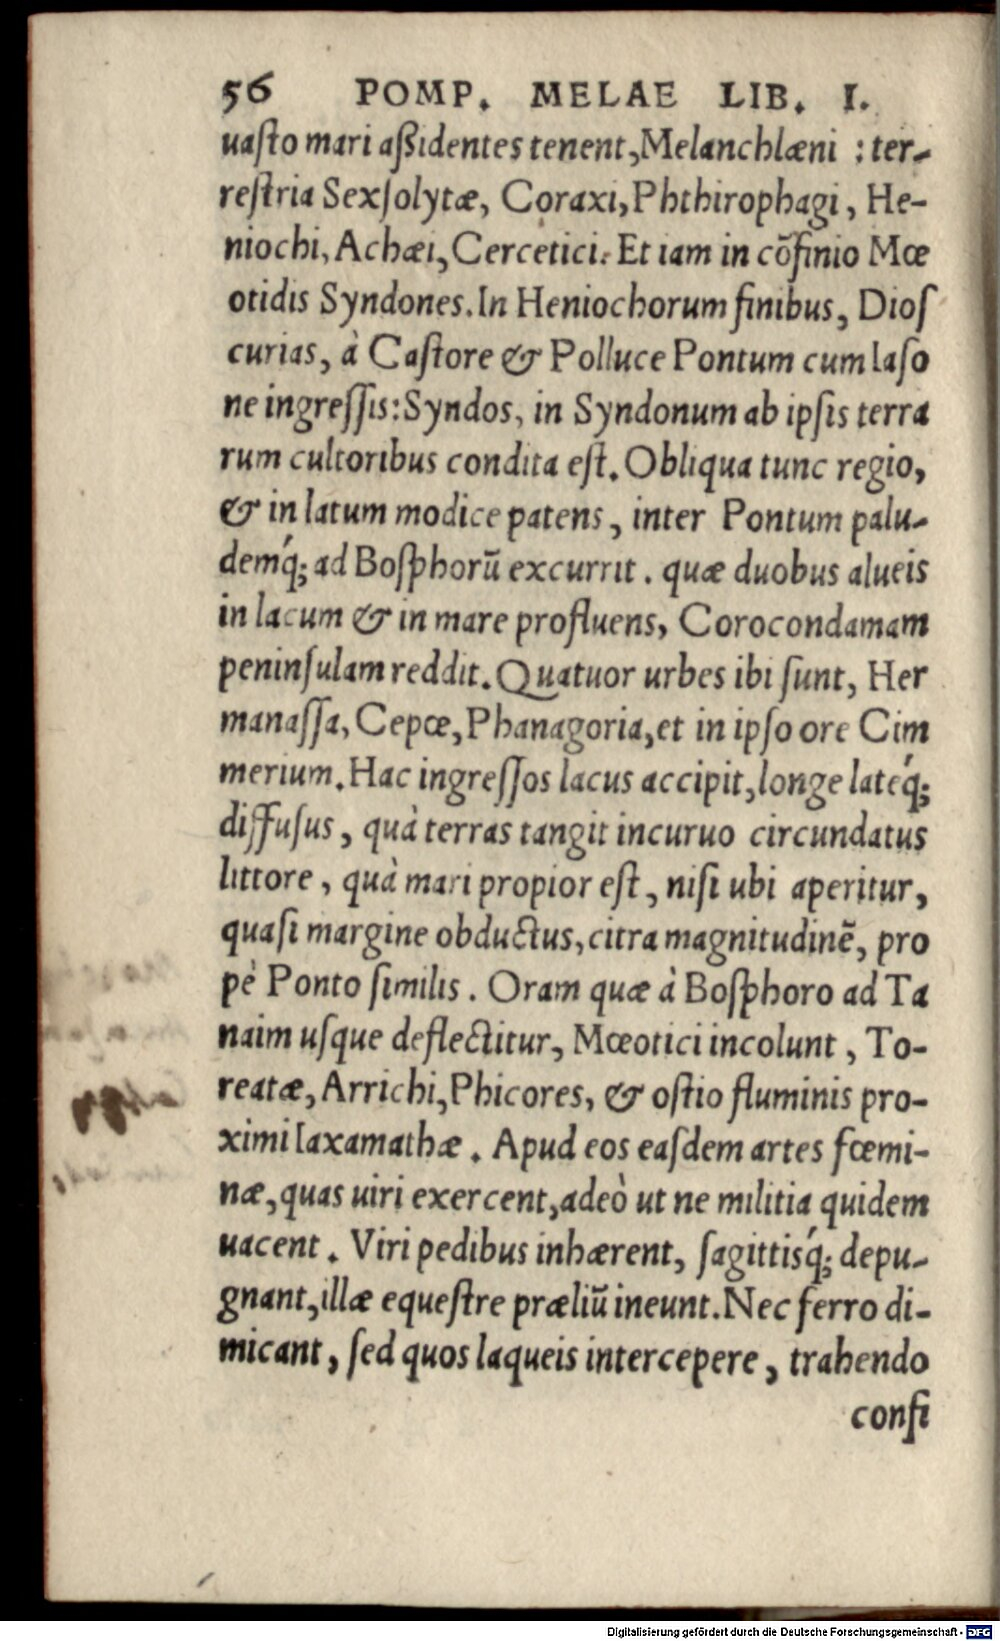 56 POMP. MELAE LIB. I.
uaſto mari aßidentes tenent, Melanchlæni : ter-
reſtria Sexſolytæ, Coraxi, Phthirophagi, He-
niochi, Achæi, Cercetici. Et iam in cõfinio Mœ
otidis Syndones. In Heniochorum finibus, Dioſ
curias, à Caſtore & Polluce Pontum cum Iaſo
ne ingreſſis: Syndos, in Syndonum ab ipſis terra
rum cultoribus condita eſt. Obliqua tunc regio,
& in latum modice patens, inter Pontum palu-
demq́; ad Boſphorũ excurrit. quæ duobus alueis
in lacum & in mare profluens, Corocondamam
peninſulam reddit. Quatuor urbes ibi ſunt, Her
manaſſa, Cepœ, Phanagoria, et in ipſo ore Cim
merium. Hac ingreſſos lacus accipit, longe lateq́;
diffuſus, quà terras tangit incuruo circundatus
littore, quà mari propior eſt, niſi ubi aperitur,
quaſi margine obductus, citra magnitudinẽ, pro
pè Ponto ſimilis. Oram quæ à Boſphoro ad Ta
naim uſque deflectitur, Mœotici incolunt, To-
reatæ, Arrichi, Phicores, & oſtio fluminis pro-
ximi Iaxamathæ. Apud eos eaſdem artes fœmi-
næ, quas uiri exercent, adeò ut ne militia quidem
uacent. Viri pedibus inhærent, ſagittisq́; depu-
gnant, illæ equeſtre præliũ ineunt. Nec ferro di-
micant, ſed quos laqueis intercepere, trahendo
confi
Digitalisierung gefördert durch die Deutsche Forschungsgemeinschaft - DFG